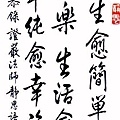 生愈簡單
樂生活愈
年純愈幸
恭錄證嚴法師靜思語